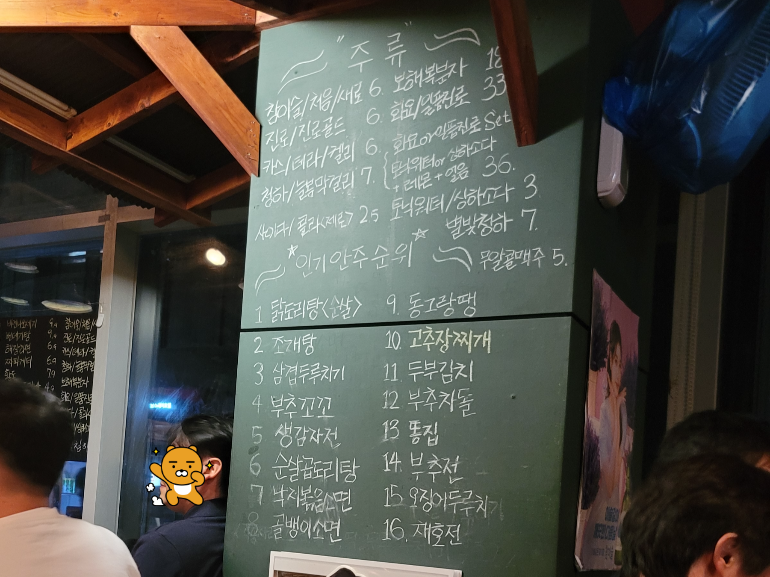 "주류"
참이슬/처음/새로 6.
진로/진로골드 6.
카스/테라/켈리 6.
청하/늘봄막걸리 7.
사이다/콜라(제로) 2.5
보해복분자 18
화요/일품진로 33
화요or일품진로 Set
토닉워터or상하소다
+레몬+얼음 36.
토닉워터/상하소다 3
별빛청하 7.
무알콜맥주 5.
*인기안주순위*
1 닭도리탕<순살>
2 조개탕
3 삼겹두루치기
4 부추꼬꼬
5 생감자전
6 순살곱도리탕
7 낙지볶음소면
8 골뱅이소면
9. 동그랑땡
10. 고추장찌개
11 두부김치
12 부추차돌
13 똥집
14. 부추전
15 오징어두루치기
16. 재호전